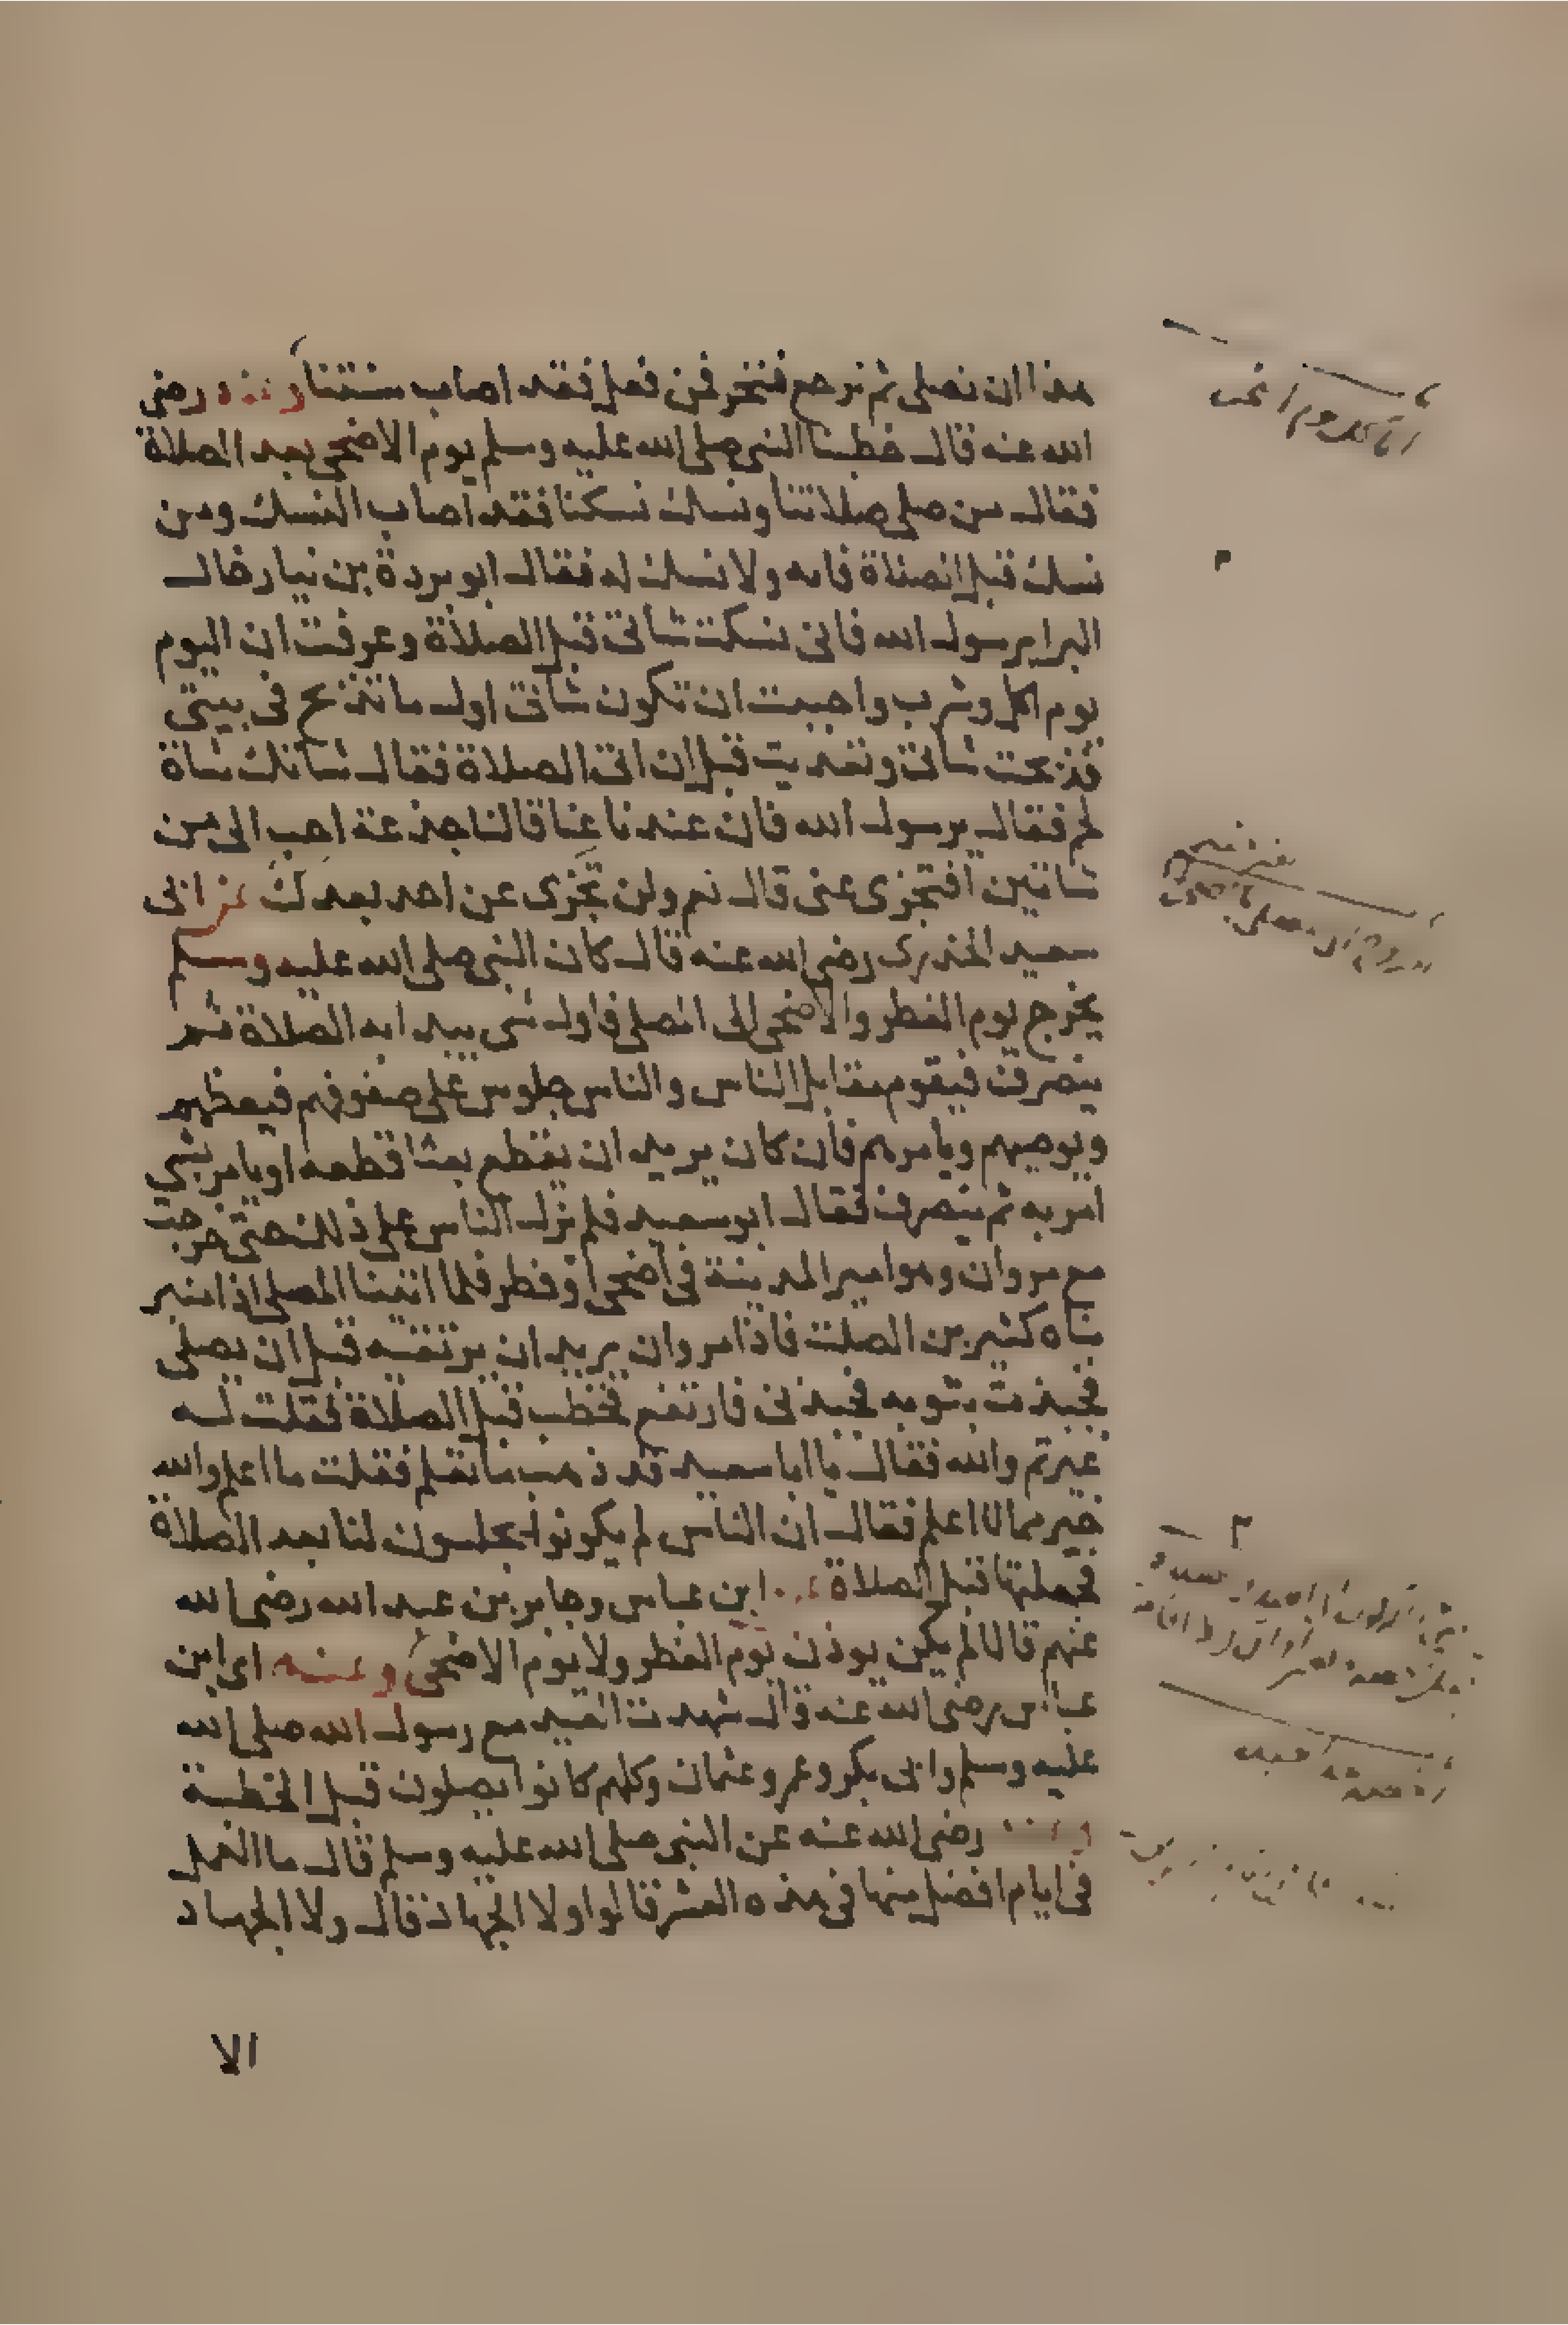 هذا ان نصلى ثم نرجع فننحر فمن فعل فقد اصاب سنتنا وعنه رضى
الله عنه قال خطبنا النبى صلى الله عليه وسلم يوم الاضحى بعد الصلاة
فقال من صلى صلاتنا ونسك نسكنا فقد اصاب النسك ومن
نسك قبل الصلاة فانه ولا نسك له فقال ابو بردة بن نيار خال
البرا يرسول الله فانى نسكت شاتى قبل الصلاة وعرفت ان اليوم
يوم اكل وشرب واحببت ان تكون شاتى اول ما تذبح فى بيتى
فذبحت شاتى وتغديت قبل ان اتى الصلاة فقال شاتك شاة
لحم فقال يرسول الله فان عندنا عناقا لنا جذعة احب الى من
شاتين افتجزى عنى قال نعم ولن تجزى عن احد بعدك عن ابى
سعيد الخدرى رضى الله عنه قال كان النبى صلى الله عليه وسلم
يخرج يوم الفطر والاضحى الى المصلى فاول شى يبدا به الصلاة ثم
ينصرف فيقوم مقابل الناس والناس جلوس على صفوفهم فيعظهم
ويوصيهم ويامرهم فان كان يريد ان يقطع بعثا قطعه او يامر بشى
امر به ثم ينصرف فقال ابو سعيد فلم نزل الناس على ذلك حتى خرجت
مع مروان وهو امير المدينة فى اضحى او فطر فلما اتينا المصلى اذا منبر
بناه كثير بن الصلت فاذا مروان يريد ان يرتقيه قبل ان يصلى
فجبذت بثوبه فجبذنى فارتفع فخطب قبل الصلاة فقلت له
غيرتم والله فقال يا ابا سعيد قد ذهب ما تعلم فقلت ما اعلم والله
خير مما لا اعلم فقال ان الناس لم يكونوا يجلسون لنا بعد الصلاة
فجعلتها قبل الصلاة عن ابن عباس وجابر بن عبد الله رضى الله
عنهم قالا لم يكن يوذن يوم الفطر ولا يوم الاضحى وعنه اى ابن
عباس رضى الله عنه قال شهدت العيد مع رسول الله صلى الله
عليه وسلم وابى بكر وعمر وعثمان وكلهم كانوا يصلون قبل الخطبة
وعنه رضى الله عنه عن النبى صلى الله عليه وسلم قال ما العمل
فى ايام افضل منها فى هذه العشر قالوا ولا الجهاد قال ولا الجهاد
الا